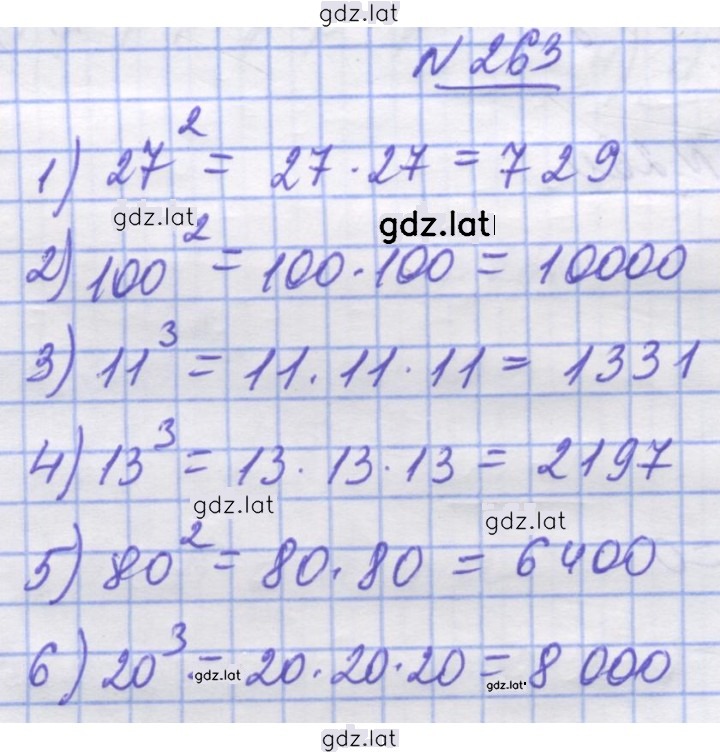 gdz.lat
N 263
1) 27² = 27 · 27 = 729
gdz.lat gdz.lat
2) 100² = 100 · 100 = 10000
3) 11³ = 11 · 11 · 11 = 1331
4) 13³ = 13 · 13 · 13 = 2197
gdz.lat gdz.lat
5) 80² = 80 · 80 = 6400
6) 20³ = 20 · 20 · 20 = 8 000
gdz.lat gdz.lat
gdz.lat